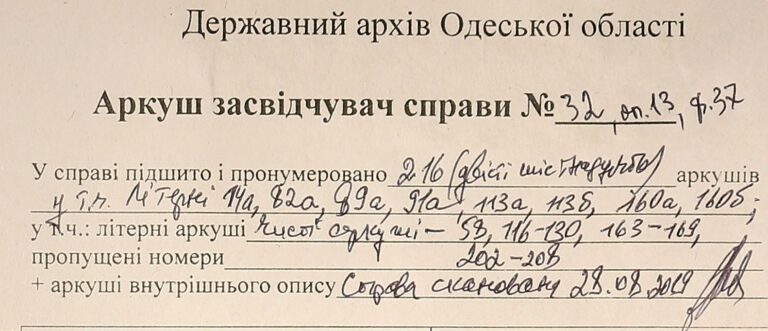 Державний архів Одеської області
Аркуш засвідчувач справи № 32, оп.13, ф.37
У справі підшито і пронумеровано 216 (двісті шістнадцять) аркушів
у т.ч. літерні 14а, 82а, 89а, 91а, 113а, 113б, 160а, 160б;
у т.ч.: літерні аркуші чисті аркуші – 58, 116-130, 163-169,
пропущені номери 202-208
+ аркуші внутрішнього опису Справа скановану 28.08.2019